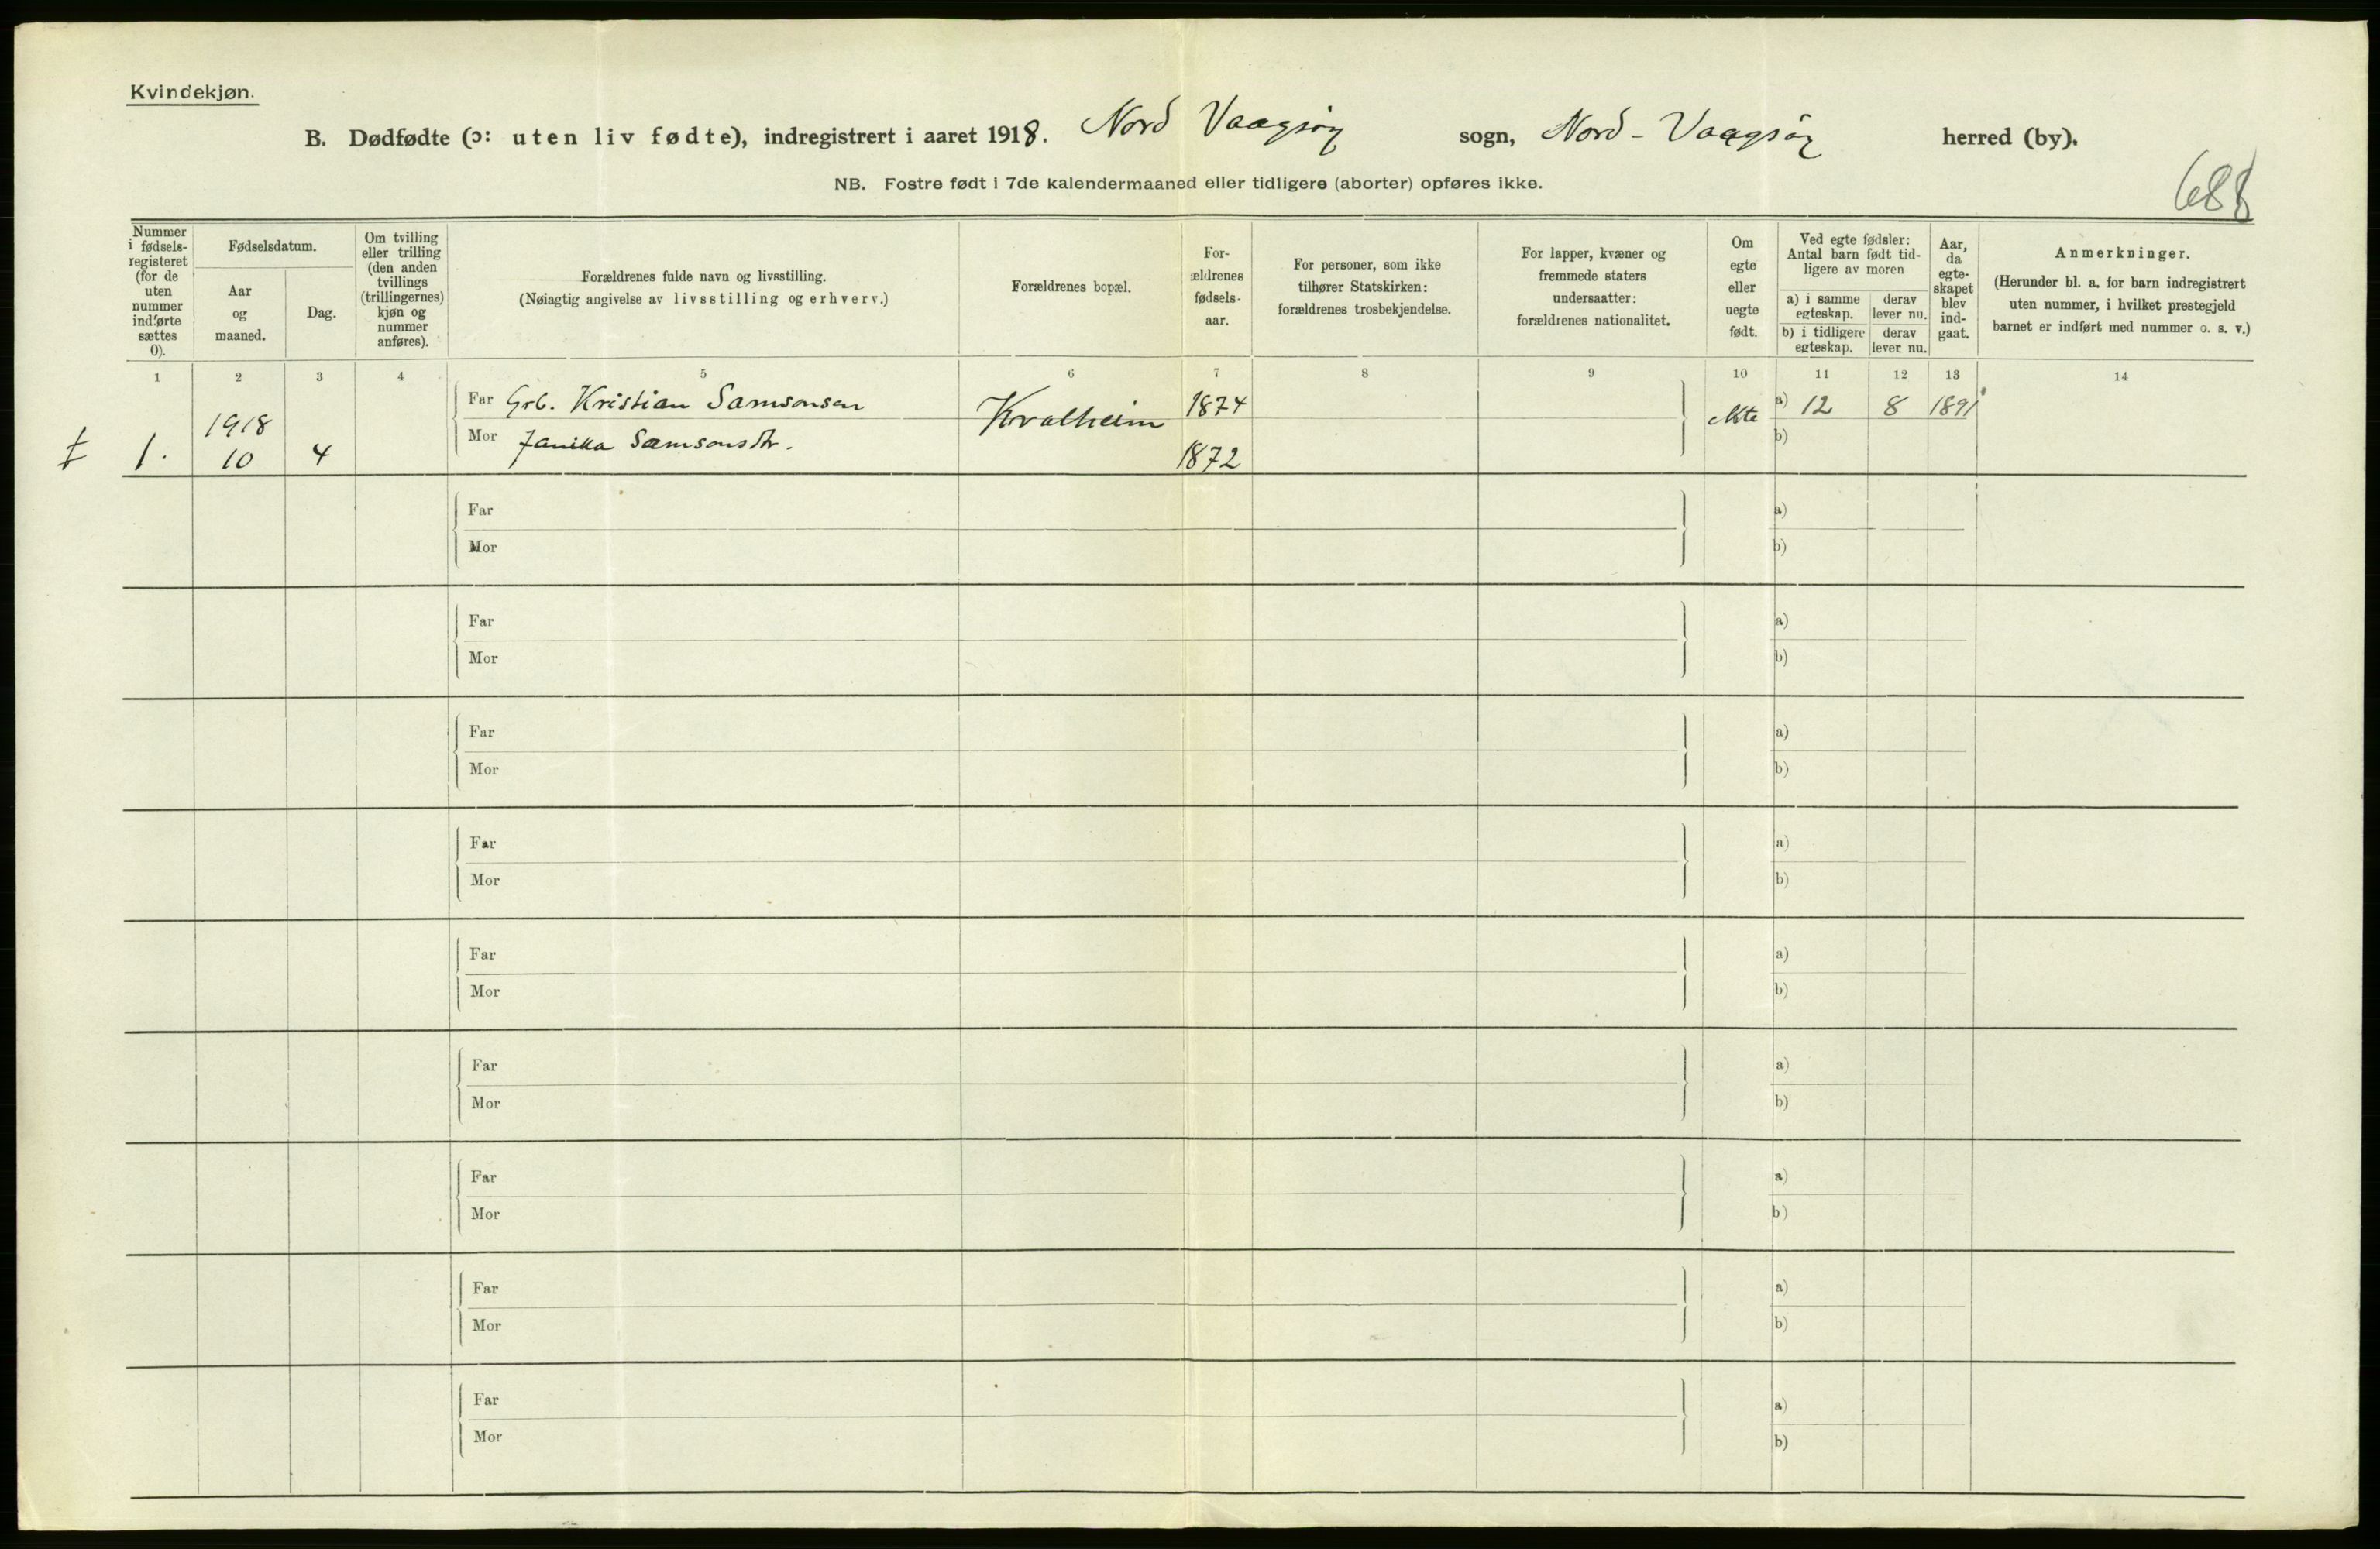 Kvindekjøn.
B. Dødfødte (ɔ: uten liv fødte), indregistrert i aaret 1918. Nord Vaagsøy sogn, Nord-Vaagsøy herred (by).
NB. Fostre født i 7de kalendermaaned eller tidligere (aborter) opføres ikke.
688
Nummer
i fødsels-
registeret
(for de
uten
nummer
indførte
sættes
0).
Fødselsdatum.
Aar
og
maaned.
Dag.
Om tvilling
eller trilling
(den anden
tvillings
(trillingernes)
kjøn og
nummer
anføres).
Forældrenes fulde navn og livsstilling.
(Nøiagtig angivelse av livsstilling og erhverv.)
Forældrenes bopæl.
For-
ældrenes
fødsels-
aar.
For personer, som ikke
tilhører Statskirken:
forældrenes trosbekjendelse.
For lapper, kvæner og
fremmede staters
undersaatter:
forældrenes nationalitet.
Om
egte
eller
uegte
født.
Ved egte fødsler:
Antal barn født tid-
ligere av moren
a) i samme
egteskap.
derav
lever nu.
b) i tidligere
egteskap.
derav
lever nu.
Aar,
da
egte-
skapet
blev
ind-
gaat.
Anmerkninger.
(Herunder bl. a. for barn indregistrert
uten nummer, i hvilket prestegjeld
barnet er indført med nummer o. s. v.)
1 2 3 4 5 6 7 8 9 10 11 12 13 14
1. 1918 10 4
Far Grb. Kristian Samsonsen Kvalheim 1874 a) 12 8 1891
Mor Samsonsdtr. 1872 b)
Far a)
Mor b)
Far a)
Mor b)
Far a)
Mor b)
Far a)
Mor b)
Far a)
Mor b)
Far a)
Mor b)
Far a)
Mor b)
Far a)
Mor b)
Far a)
Mor b)